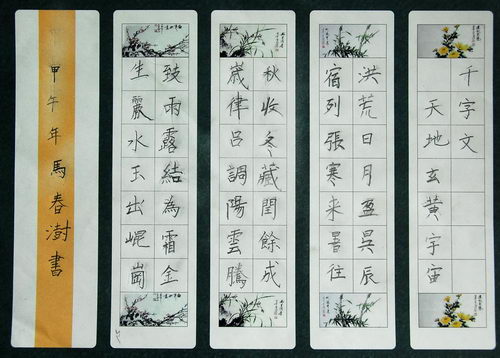 千字文
天地玄黃宇宙
洪荒日月盈昃辰
宿列張寒来暑往
秋收冬藏閏餘成
歲律呂調陽雲騰
致雨露結為霜金
生麗水玉出崐崗
甲午年馬春澍書